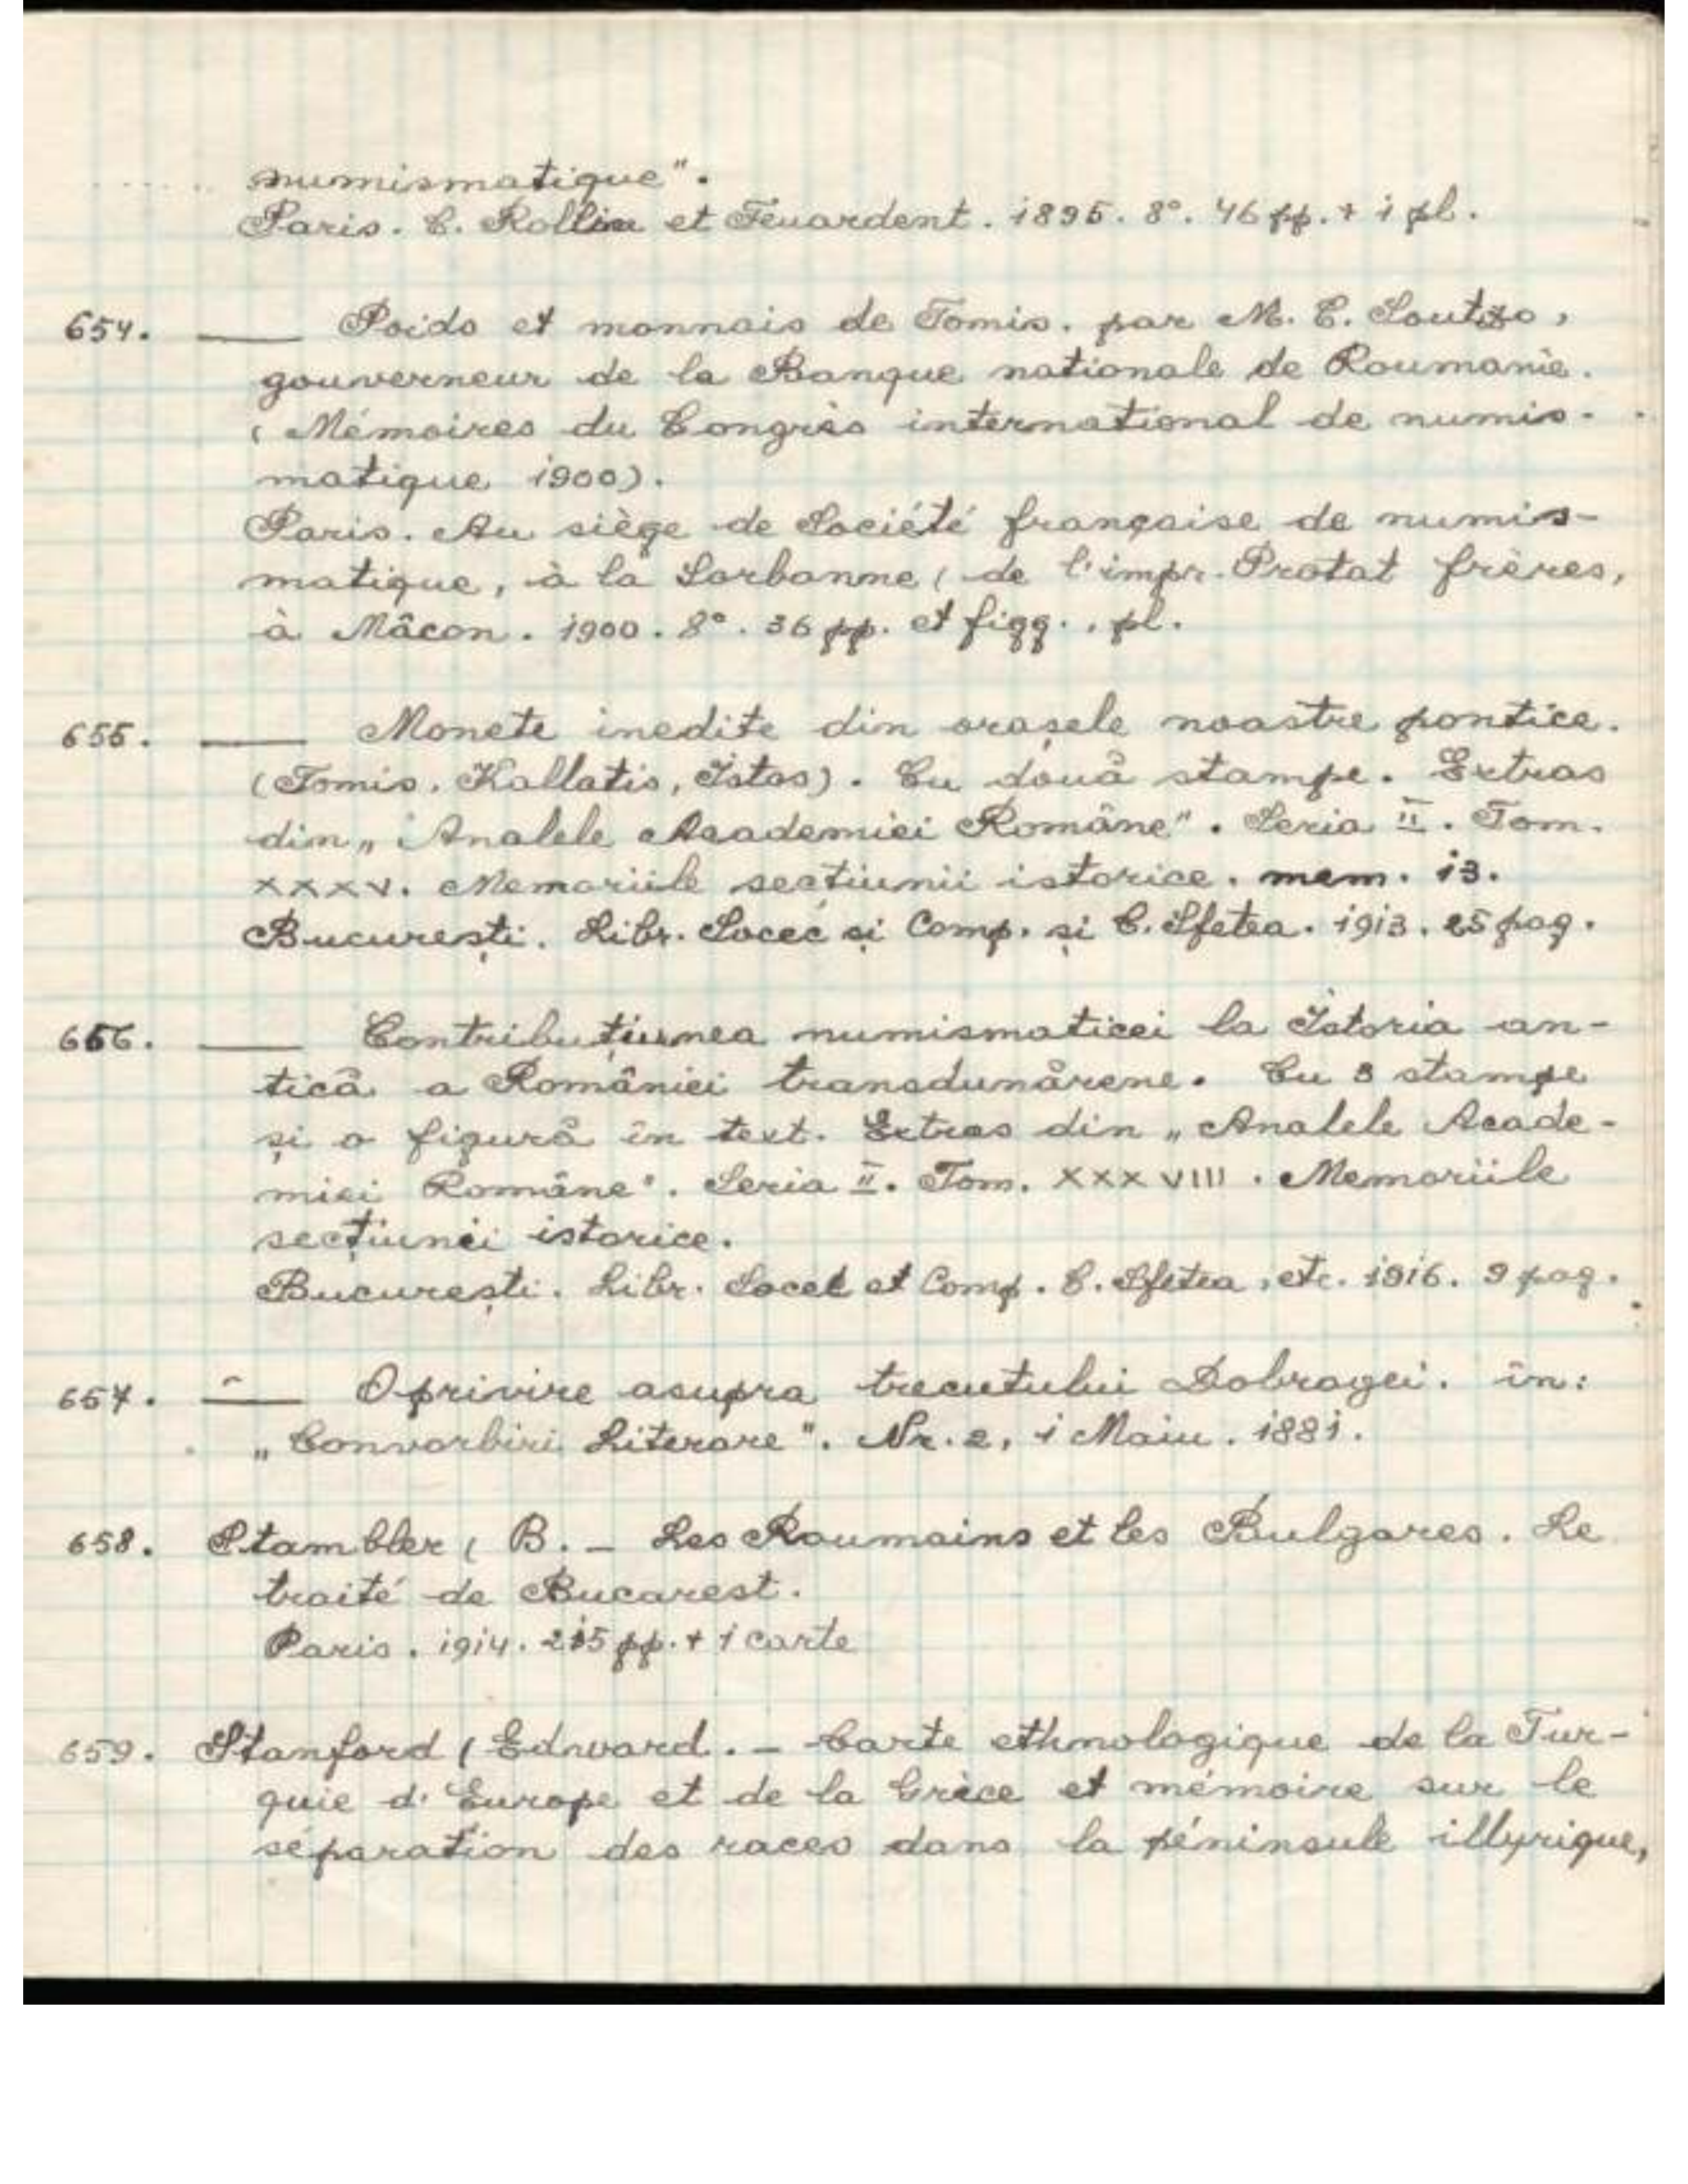 numismatique".
Paris. C. Rollin et Feuardent. 1895. 8°. 46 pp. + 1 pl.
654. ___ Poids et monnais de Tomis. par M. C. Soutzo,
gouverneur de la Banque nationale de Roumanie.
(Mémoires du Congrès international de numis-
matique 1900).
Paris. Au siège de Société française de numis-
matique, à la Sorbonne (de l'impr. Protat frères,
à Mâcon. 1900. 8°. 36 pp. et figg., pl.
655. ___ Monete inedite din orașele noastre pontice.
(Tomis, Kallatis, Istos). Cu două stampe. Extras
din „Analele Academiei Române". Seria II. Tom.
XXXV. Memoriile secțiunii istorice. mem. 13.
București. Libr. Socec și Comp. și C. Sfetea. 1913. 25 pag.
656. ___ Contribuțiunea numismaticei la Istoria an-
tică a României transdunărene. Cu 3 stampe
și o figură în text. Extras din „Analele Acade-
miei Române". Seria II. Tom. XXXVIII. Memoriile
secțiunei istorice.
București. Libr. Socec et Comp. C. Sfetea, etc. 1916. 9 pag.
657. ___ O privire asupra trecutului Dobrogei. în:
„Convorbiri Literare". Nr. 2, 1 Maiu. 1881.
658. Stambler (B. – Les Roumains et les Bulgares. Le
traité de Bucarest.
Paris. 1914. 215 pp. + 1 carte
659. Stanford (Edward. – Carte ethnologique de la Tur-
quie d'Europe et de la Grèce et mémoire sur le
séparation des races dans la péninsule illyrique,